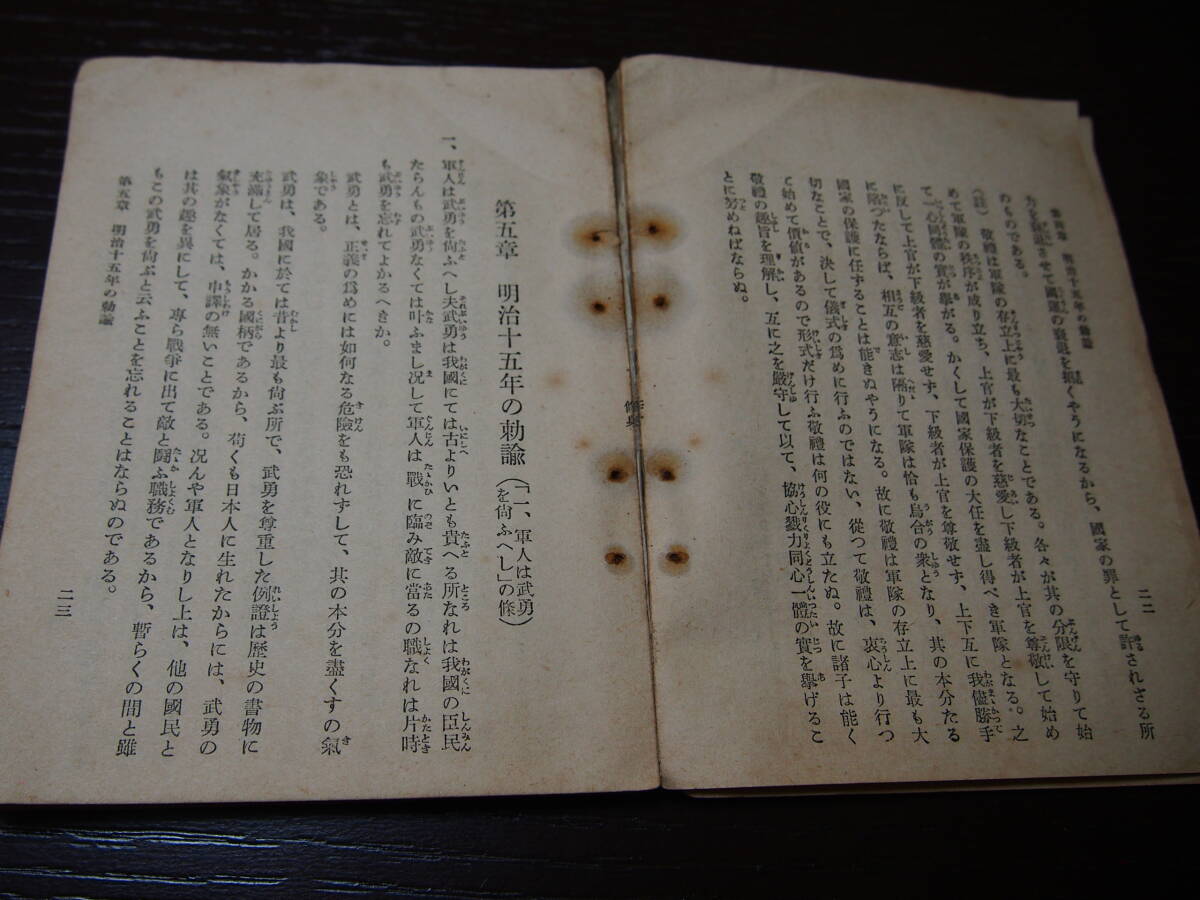 二二
第四章 明治十五年の勅諭
力を減退させて國運の衰退を招くやうになるから、國家の罪として許されざる所
のものである。
（註） 敬禮は軍隊の存立上に最も大切なことである。各々が其の分限を守りて始
めて軍隊の秩序が成り立ち、上官が下級者を慈愛し下級者が上官を尊敬して始め
て、心同體の實が擧がる。かくして國家保護の大任を盡し得べき軍隊となる。之
に反して上官が下級者を慈愛せず、下級者が上官を尊敬せず、上下互に我儘勝手
に陷つたならば、相互の意志は隔りて軍隊は恰も烏合の衆となり、其の本分たる
國家の保護に任ずることは能きぬやうになる。故に敬禮は軍隊の存立上に最も大
切なことで、決して儀式の爲めに行ふのではない、從つて敬禮は、衷心より行つ
て始めて價値があるので形式だけ行ふ敬禮は何の役にも立たぬ。故に諸子は能く
敬禮の趣旨を理解し、互に之を嚴守して以て、協心戮力同心一體の實を擧げるこ
とに努めねばならぬ。
第五章 明治十五年の勅諭（「一、軍人は武勇を尙ふへし」の條）
一、軍人は武勇を尙ふへし夫武勇は我國にては古よりいとも貴へる所なれは我國の臣民
たらんもの武勇なくては叶ふまし况して軍人は戰に臨み敵に當るの職なれは片時
も武勇を忘れてよかるへきか。
武勇とは、正義の爲めには如何なる危險をも恐れずして、其の本分を盡くすの氣
象である。
武勇は、我國に於ては昔より最も尙ぶ所で、武勇を尊重した例證は歷史の書物に
充滿して居る。かかる國柄であるから、苟くも日本人に生れたからには、武勇の
氣象がなくては、申譯の無いことである。况んや軍人となりし上は、他の國民と
は其の趣を異にして、專ら戰爭に出て敵と鬪ふ職務であるから、暫らくの間と雖
もこの武勇を尙ぶと云ふことを忘れることはならぬのである。
第五章 明治十五年の勅諭
二三